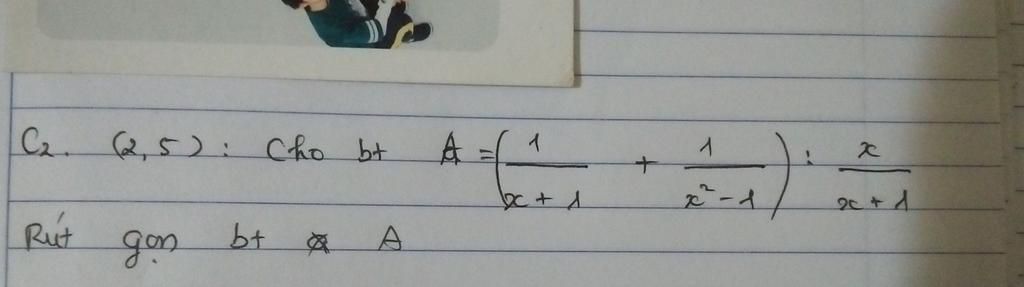 C2. (2,5): Cho bt A = (1/(x+1) + 1/(x²-1)) : x/(x+1)
Rút gọn bt A